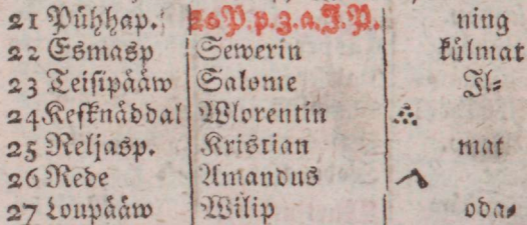 21 Pühhap. 20 P. p. 3. a. J. P. ning
22 Esmasp Sewerin külmat
23 Teisipääw Salome Il⸗
24 Kesknäddal Wlorentin
25 Neljasp. Kristian mat
26 Rede Amandus
27 Loupääw Wilip oda⸗